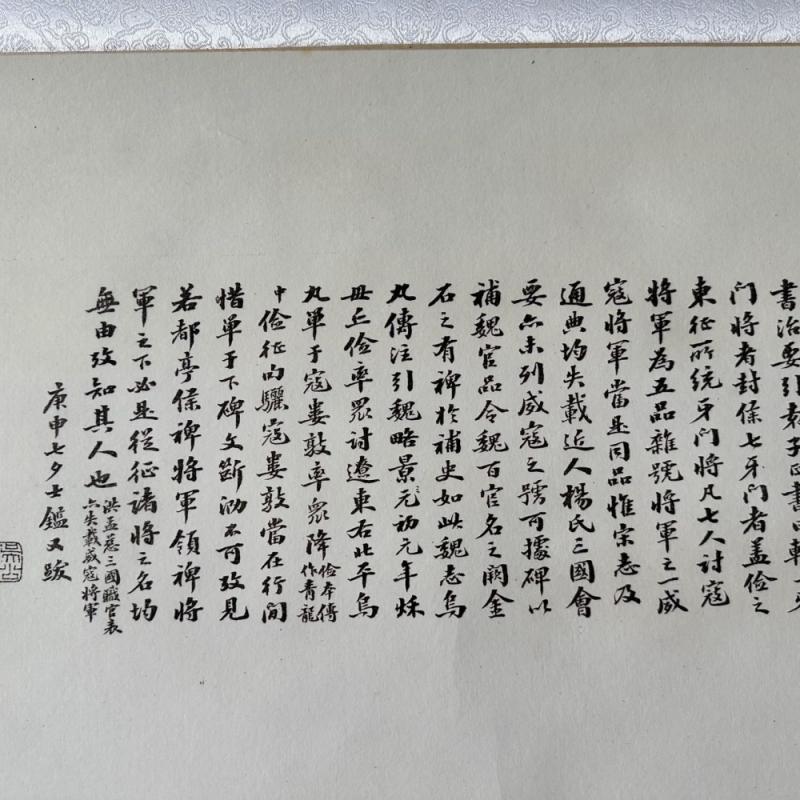 書治要引袁子正書曰
門將者封侯七牙門者蓋儉之
東征所統牙門將凡七人討寇
將軍為五品雜號將軍之一威
寇將軍當是同品惟宋志及
通典均失載近人楊氏三國會
要亦未列威寇之號可據碑以
補魏官品令魏百官名之闕金
石之有裨於補史如此魏志烏
丸傳注引魏略景元初元年秋
毌丘儉率眾討遼東右北平烏
丸單于寇婁敦率眾降
儉本傳
作青龍
中儉征句驪寇婁敦當在行間
惜單于下碑文斷泐不可攷見
若都亭侯裨將軍領裨將
軍之下必是從征諸將之名均
無由攷知其人也
洪孟慈三國職官表
亦失載威寇將軍
庚申七夕士鑑又跋